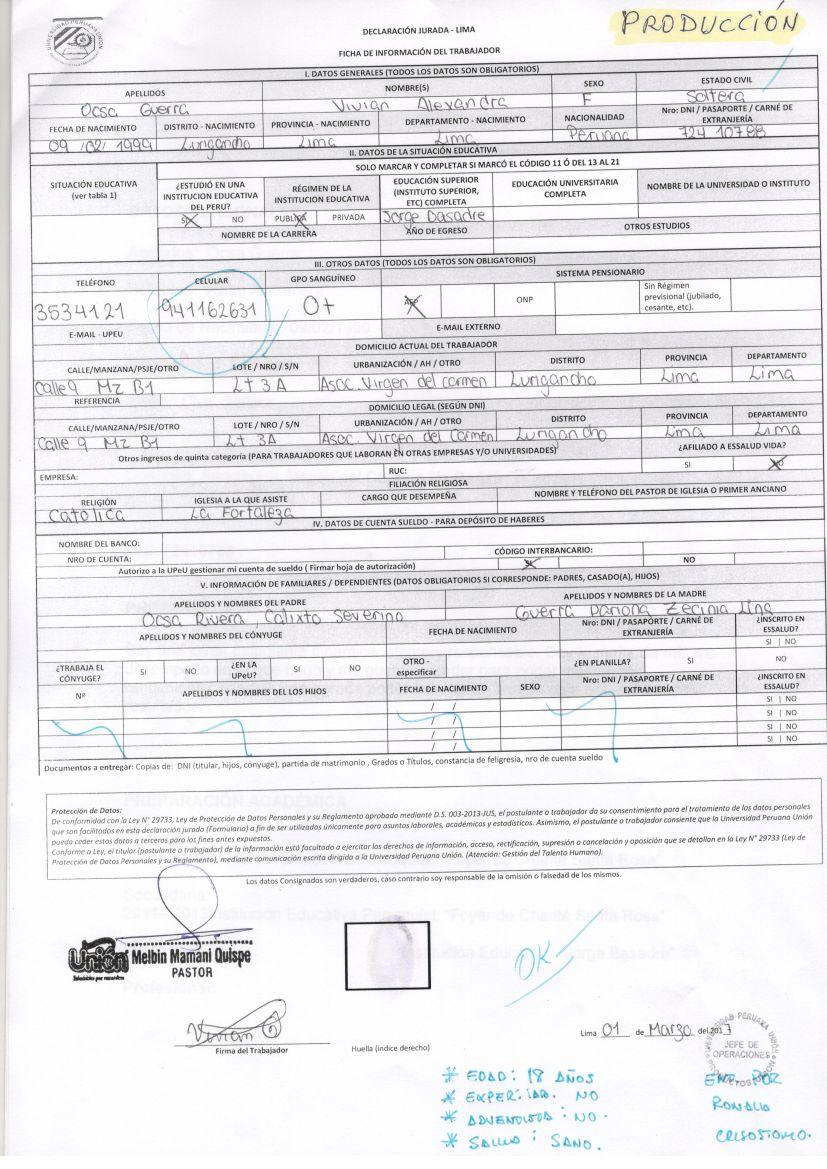 UNIVERSIDAD PERUANA UNIÓN
PRODUCCIÓN
DECLARACIÓN JURADA - LIMA
FICHA DE INFORMACIÓN DEL TRABAJADOR
I. DATOS GENERALES (TODOS LOS DATOS SON OBLIGATORIOS)
APELLIDOS NOMBRE(S) SEXO ESTADO CIVIL
Ocsa Guerra Vivian Alexandra F Soltera
FECHA DE NACIMIENTO DISTRITO - NACIMIENTO PROVINCIA - NACIMIENTO DEPARTAMENTO - NACIMIENTO NACIONALIDAD Nro: DNI / PASAPORTE / CARNÉ DE EXTRANJERÍA
09 /02/ 1999 Lurigancho Lima Lima Peruana 72410788
II. DATOS DE LA SITUACIÓN EDUCATIVA
SOLO MARCAR Y COMPLETAR SI MARCÓ EL CÓDIGO 11 Ó DEL 13 AL 21
SITUACIÓN EDUCATIVA (ver tabla 1) ¿ESTUDIÓ EN UNA INSTITUCION EDUCATIVA DEL PERU? RÉGIMEN DE LA INSTITUCION EDUCATIVA EDUCACIÓN SUPERIOR (INSTITUTO SUPERIOR, ETC) COMPLETA EDUCACIÓN UNIVERSITARIA COMPLETA NOMBRE DE LA UNIVERSIDAD O INSTITUTO
SI NO PUBLICA PRIVADA Jorge Basadre
NOMBRE DE LA CARRERA AÑO DE EGRESO OTROS ESTUDIOS
III. OTROS DATOS (TODOS LOS DATOS SON OBLIGATORIOS)
TELÉFONO CELULAR GPO SANGUÍNEO SISTEMA PENSIONARIO
3534121 941162631 O+ AFP ONP Sin Régimen previsional (jubilado, cesante, etc).
E-MAIL - UPEU E-MAIL EXTERNO
DOMICILIO ACTUAL DEL TRABAJADOR
CALLE/MANZANA/PSJE/OTRO LOTE / NRO / S/N URBANIZACIÓN / AH / OTRO DISTRITO PROVINCIA DEPARTAMENTO
Calle 9 Mz B1 Lt 3A Asoc. Virgen del carmen Lurigancho Lima Lima
REFERENCIA DOMICILIO LEGAL (SEGÚN DNI)
CALLE/MANZANA/PSJE/OTRO LOTE / NRO / S/N URBANIZACIÓN / AH / OTRO DISTRITO PROVINCIA DEPARTAMENTO
Calle 9 Mz B1 Lt 3A Asoc. Virgen del Carmen Lurigancho Lima Lima
Otros ingresos de quinta categoría (PARA TRABAJADORES QUE LABORAN EN OTRAS EMPRESAS Y/O UNIVERSIDADES) ¿AFILIADO A ESSALUD VIDA?
EMPRESA: RUC: SI NO
FILIACIÓN RELIGIOSA
RELIGIÓN IGLESIA A LA QUE ASISTE CARGO QUE DESEMPEÑA NOMBRE Y TELÉFONO DEL PASTOR DE IGLESIA O PRIMER ANCIANO
Catolica La Fortaleza
IV. DATOS DE CUENTA SUELDO - PARA DEPÓSITO DE HABERES
NOMBRE DEL BANCO:
NRO DE CUENTA: CÓDIGO INTERBANCARIO:
Autorizo a la UPeU gestionar mi cuenta de sueldo ( Firmar hoja de autorización) SI NO
V. INFORMACIÓN DE FAMILIARES / DEPENDIENTES (DATOS OBLIGATORIOS SI CORRESPONDE: PADRES, CASADO(A), HIJOS)
APELLIDOS Y NOMBRES DEL PADRE APELLIDOS Y NOMBRES DE LA MADRE
Ocsa Rivera, Calixto Severino Guerra Pariona Zecinia Lina
APELLIDOS Y NOMBRES DEL CÓNYUGE FECHA DE NACIMIENTO Nro: DNI / PASAPORTE / CARNÉ DE EXTRANJERÍA ¿INSCRITO EN ESSALUD?
SI | NO
¿TRABAJA EL CÓNYUGE? SI NO ¿EN LA UPeU? SI NO OTRO - especificar ¿EN PLANILLA? SI NO
Nº APELLIDOS Y NOMBRES DE LOS HIJOS FECHA DE NACIMIENTO SEXO Nro: DNI / PASAPORTE / CARNÉ DE EXTRANJERÍA ¿INSCRITO EN ESSALUD?
/ / SI | NO
/ / SI | NO
/ / SI | NO
/ / SI | NO
Documentos a entregar: Copias de: DNI (titular, hijos, cónyuge), partida de matrimonio , Grados o Títulos, constancia de feligresia, nro de cuenta sueldo
Protección de Datos:
De conformidad con la Ley N° 29733, Ley de Protección de Datos Personales y su Reglamento aprobado mediante D.S. 003-2013-JUS, el postulante o trabajador da su consentimiento para el tratamiento de los datos personales
que son facilitados en esta declaración jurada (Formulario) a fin de ser utilizados únicamente para asuntos laborales, académicos y estadísticos. Asimismo, el postulante o trabajador consiente que la Universidad Peruana Unión
pueda ceder estos datos a terceros para los fines antes expuestos.
Conforme a Ley, el titular (postulante o trabajador) de la información está facultado a ejercitar los derechos de información, acceso, rectificación, supresión o cancelación y oposición que se detallan en la Ley N° 29733 (Ley de
Protección de Datos Personales y su Reglamento), mediante comunicación escrita dirigida a la Universidad Peruana Unión. (Atención: Gestión del Talento Humano).
Los datos Consignados son verdaderos, caso contrario soy responsable de la omisión o falsedad de los mismos.
Unión
Melbin Mamani Quispe
PASTOR
OK
Vivian
Firma del Trabajador
Huella (índice derecho)
Lima 01 de Marzo del 2017
JEFE DE
OPERACIONES
* EDAD: 18 AÑOS
* EXPER. LAB. NO
* ADVENTISTA: NO.
* SALUD: SANO.
ENT. POR
RONALD
CRISOSTOMO.